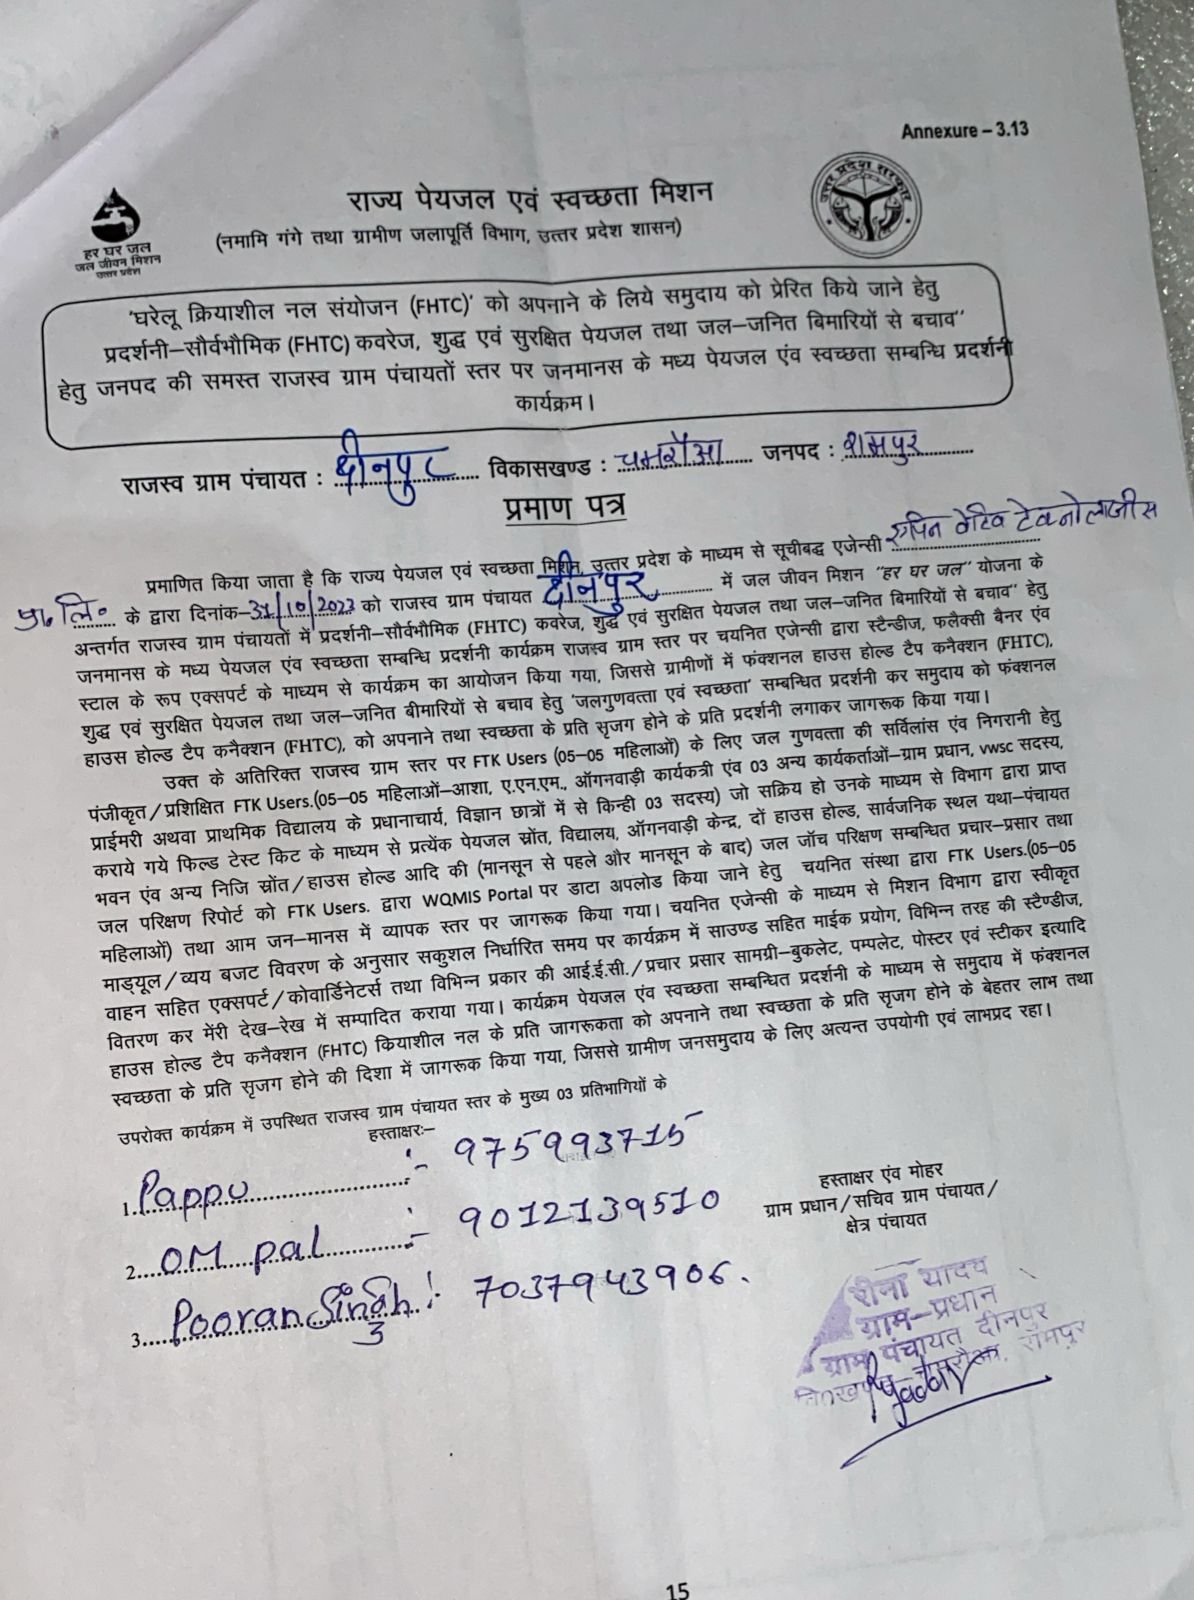 Annexure – 3.13
राज्य पेयजल एवं स्वच्छता मिशन
(नमामि गंगे तथा ग्रामीण जलापूर्ति विभाग, उत्तर प्रदेश शासन)
हर घर जल
जल जीवन मिशन
उत्तर प्रदेश
उत्तर प्रदेश सरकार
'घरेलू क्रियाशील नल संयोजन (FHTC)' को अपनाने के लिये समुदाय को प्रेरित किये जाने हेतु
प्रदर्शनी–सौर्वभौमिक (FHTC) कवरेज, शुद्ध एवं सुरक्षित पेयजल तथा जल–जनित बिमारियों से बचाव''
हेतु जनपद की समस्त राजस्व ग्राम पंचायतों स्तर पर जनमानस के मध्य पेयजल एंव स्वच्छता सम्बन्धि प्रदर्शनी
कार्यक्रम।
राजस्व ग्राम पंचायत : दीनपुर विकासखण्ड : चमरौआ जनपद : रामपुर
प्रमाण पत्र
प्रमाणित किया जाता है कि राज्य पेयजल एवं स्वच्छता मिशन, उत्तर प्रदेश के माध्यम से सूचीबद्ध एजेन्सी टेक्नोलाजीस
प्रा० लि० के द्वारा दिनांक–31/10/2023 को राजस्व ग्राम पंचायत दीनपुर में जल जीवन मिशन "हर घर जल" योजना के
अन्तर्गत राजस्व ग्राम पंचायतों में प्रदर्शनी–सौर्वभौमिक (FHTC) कवरेज, शुद्ध एवं सुरक्षित पेयजल तथा जल–जनित बिमारियों से बचाव" हेतु
जनमानस के मध्य पेयजल एंव स्वच्छता सम्बन्धि प्रदर्शनी कार्यक्रम राजस्व ग्राम स्तर पर चयनित एजेन्सी द्वारा स्टैन्डीज, फलैक्सी बैनर एंव
स्टाल के रूप एक्सपर्ट के माध्यम से कार्यक्रम का आयोजन किया गया, जिससे ग्रामीणों में फंक्शनल हाउस होल्ड टैप कनैक्शन (FHTC),
शुद्ध एवं सुरक्षित पेयजल तथा जल–जनित बीमारियों से बचाव हेतु 'जलगुणवत्ता एवं स्वच्छता' सम्बन्धित प्रदर्शनी कर समुदाय को फंक्शनल
हाउस होल्ड टैप कनैक्शन (FHTC), को अपनाने तथा स्वच्छता के प्रति सृजग होने के प्रति प्रदर्शनी लगाकर जागरूक किया गया।
उक्त के अतिरिक्त राजस्व ग्राम स्तर पर FTK Users (05–05 महिलाओं) के लिए जल गुणवत्ता की सर्विलांस एंव निगरानी हेतु
पंजीकृत/प्रशिक्षित FTK Users.(05–05 महिलाओं–आशा, ए.एन.एम., ऑगनवाड़ी कार्यकत्री एंव 03 अन्य कार्यकर्ताओं–ग्राम प्रधान, vwsc सदस्य,
प्राईमरी अथवा प्राथमिक विद्यालय के प्रधानाचार्य, विज्ञान छात्रों में से किन्ही 03 सदस्य) जो सक्रिय हो उनके माध्यम से विभाग द्वारा प्राप्त
कराये गये फिल्ड टेस्ट किट के माध्यम से प्रत्येंक पेयजल स्रोंत, विद्यालय, ऑगनवाड़ी केन्द्र, दों हाउस होल्ड, सार्वजनिक स्थल यथा–पंचायत
भवन एंव अन्य निजि स्रोंत/हाउस होल्ड आदि की (मानसून से पहले और मानसून के बाद) जल जॉच परिक्षण सम्बन्धित प्रचार–प्रसार तथा
जल परिक्षण रिपोर्ट को FTK Users. द्वारा WQMIS Portal पर डाटा अपलोड किया जाने हेतु चयनित संस्था द्वारा FTK Users.(05–05
महिलाओं) तथा आम जन–मानस में व्यापक स्तर पर जागरूक किया गया। चयनित एजेन्सी के माध्यम से मिशन विभाग द्वारा स्वीकृत
माड्यूल/व्यय बजट विवरण के अनुसार सकुशल निर्धारित समय पर कार्यक्रम में साउण्ड सहित माईक प्रयोग, विभिन्न तरह की स्टैण्डीज,
वाहन सहित एक्सपर्ट/कोवार्डिनेटर्स तथा विभिन्न प्रकार की आई.ई.सी./प्रचार प्रसार सामग्री–बुकलेट, पम्पलेट, पोस्टर एवं स्टीकर इत्यादि
वितरण कर मेंरी देख–रेख में सम्पादित कराया गया। कार्यक्रम पेयजल एंव स्वच्छता सम्बन्धित प्रदर्शनी के माध्यम से समुदाय में फंक्शनल
हाउस होल्ड टैप कनैक्शन (FHTC) कियाशील नल के प्रति जागरूकता को अपनाने तथा स्वच्छता के प्रति सृजग होने के बेहतर लाभ तथा
स्वच्छता के प्रति सृजग होने की दिशा में जागरूक किया गया, जिससे ग्रामीण जनसमुदाय के लिए अत्यन्त उपयोगी एवं लाभप्रद रहा।
उपरोक्त कार्यक्रम में उपस्थित राजस्व ग्राम पंचायत स्तर के मुख्य 03 प्रतिभागियों के
हस्ताक्षरः–
1. Pappu :- 975993715
2. OM pal :- 9012139510
3. Pooran Singh :- 7037943906.
हस्ताक्षर एंव मोहर
ग्राम प्रधान/सचिव ग्राम पंचायत/
क्षेत्र पंचायत
रीना यादव
ग्राम–प्रधान
ग्राम पंचायत दीनपुर
चमरौआ, रामपुर
Ryadav
15